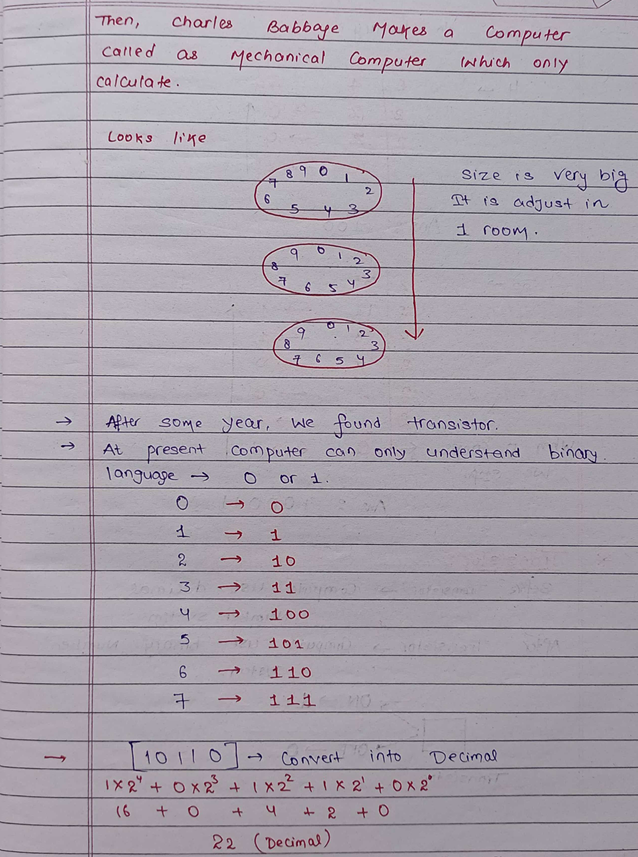 Then, Charles Babbage Makes a Computer
called as Mechanical Computer which only
calculate.
Looks like
7 8 9 0 1 2
6 5 4 3
Size is very big
It is adjust in
1 room.
8 9 0 1 2 3
7 6 5 4
9 0 1 2
8 3
7 6 5 4
→ After some year, we found transistor.
→ At present computer can only understand binary
language → 0 or 1.
0 → 0
1 → 1
2 → 10
3 → 11
4 → 100
5 → 101
6 → 110
7 → 111
→ [10110] → Convert into Decimal
1×2⁴ + 0×2³ + 1×2² + 1×2¹ + 0×2⁰
16 + 0 + 4 + 2 + 0
22 (Decimal)